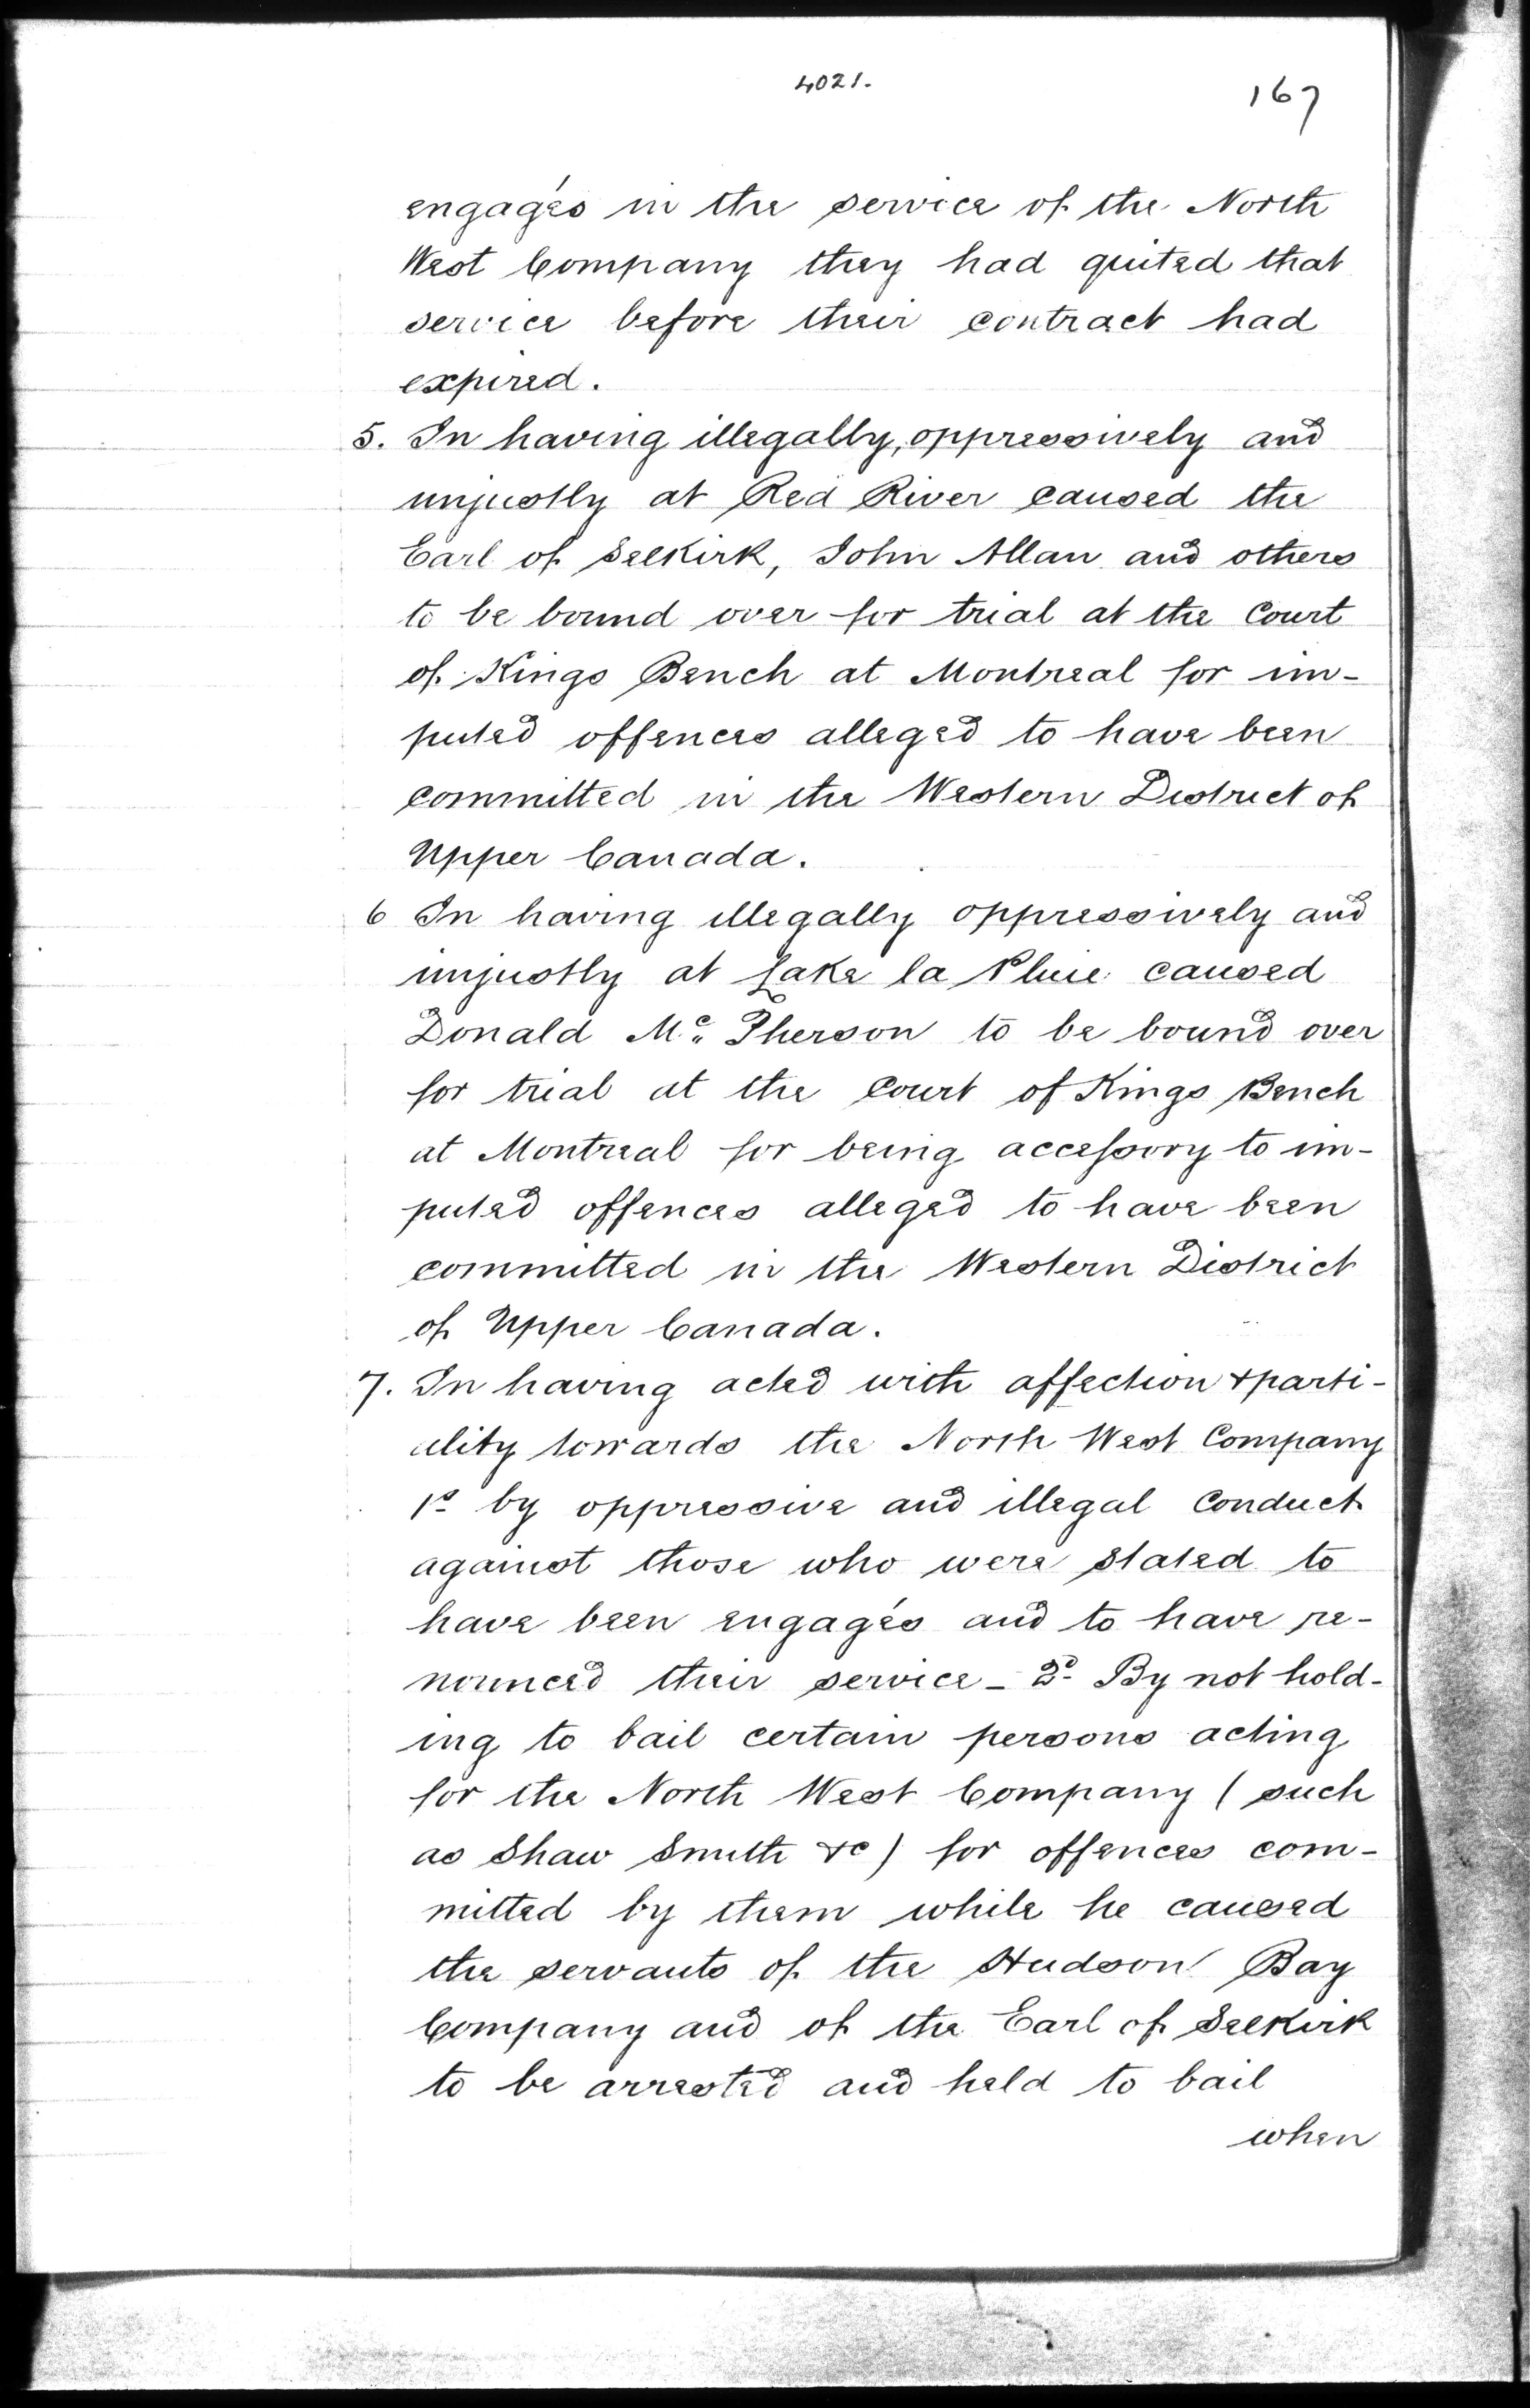 4021.
167
engagés in the service of the North
West Company they had quited that
service before their contract had
expired.
5. In having illegally, oppressively and
unjustly at Red River caused the
Earl of Selkirk, John Allan and others
to be bound over for trial at the Court
of Kings Bench at Montreal for im-
puted offences alleged to have been
committed in the Western District of
Upper Canada.
6 In having illegally oppressively and
unjustly at Lake la Pluie caused
Donald Mc. Pherson to be bound over
for trial at the Court of Kings Bench
at Montreal for being accessory to im-
puted offences alleged to have been
committed in the Western District
of Upper Canada.
7. In having acted with affection & parti-
ality towards the North West Company
1o by oppressive and illegal conduct
against those who were stated to
have been engagés and to have re-
nounced their service - 2o By not hold-
ing to bail certain persons acting
for the North West Company (such
as Shaw Smith &c) for offences com-
mitted by them while he caused
the servants of the Hudson Bay
Company and of the Earl of Selkirk
to be arrested and held to bail
when